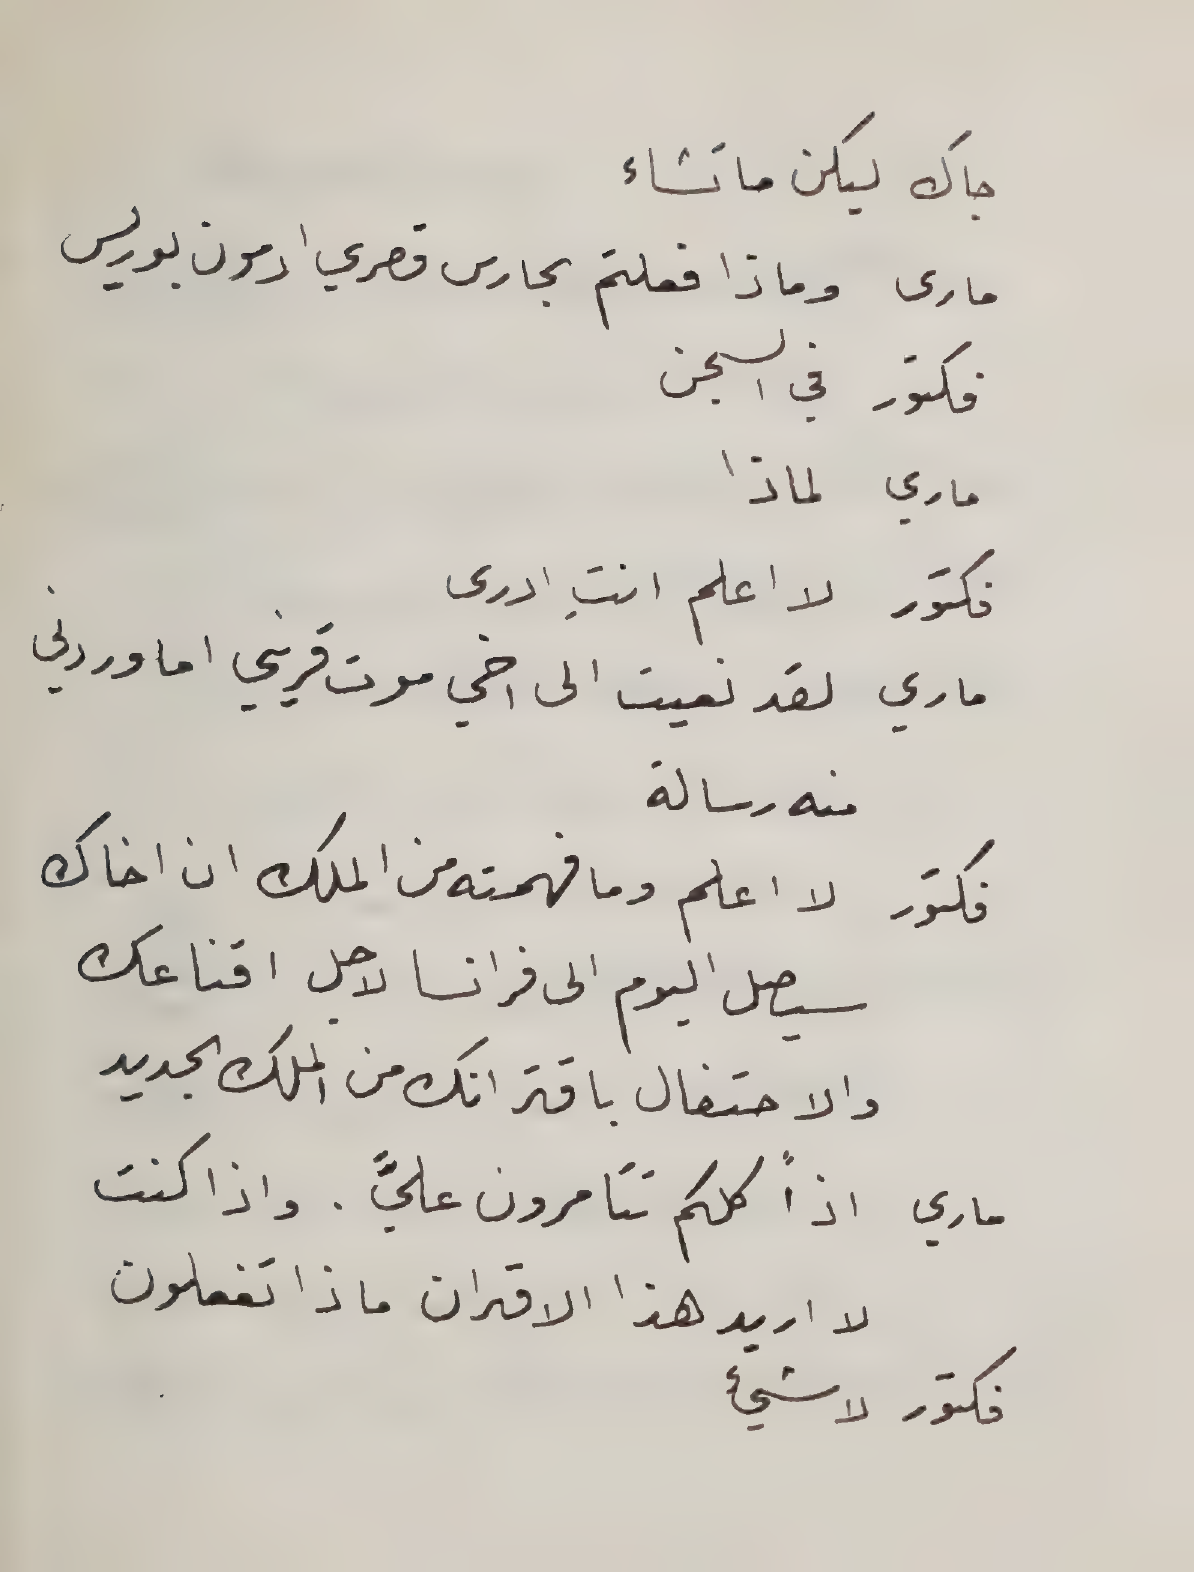 جاك ليكن ما تشاء
مارى وماذا فعلتم بحارس قصري ادمون بوريس
فكتور في السجن
ماري لماذا
فكتور لا اعلم انتِ ادرى
ماري لقد نعيت الى اخي موت قريني اما وردني
منه رسالة
فكتور لا اعلم وما فهمته من الملك ان اخاك
سيصل اليوم الى فرانسا لاجل اقناعك
والاحتفال باقترانك من الملك الجديد
ماري اذاً كلكم تتآمرون عليَّ . واذا كنت
لا اريد هذا الاقتران ماذا تفعلون
فكتور لا شيء